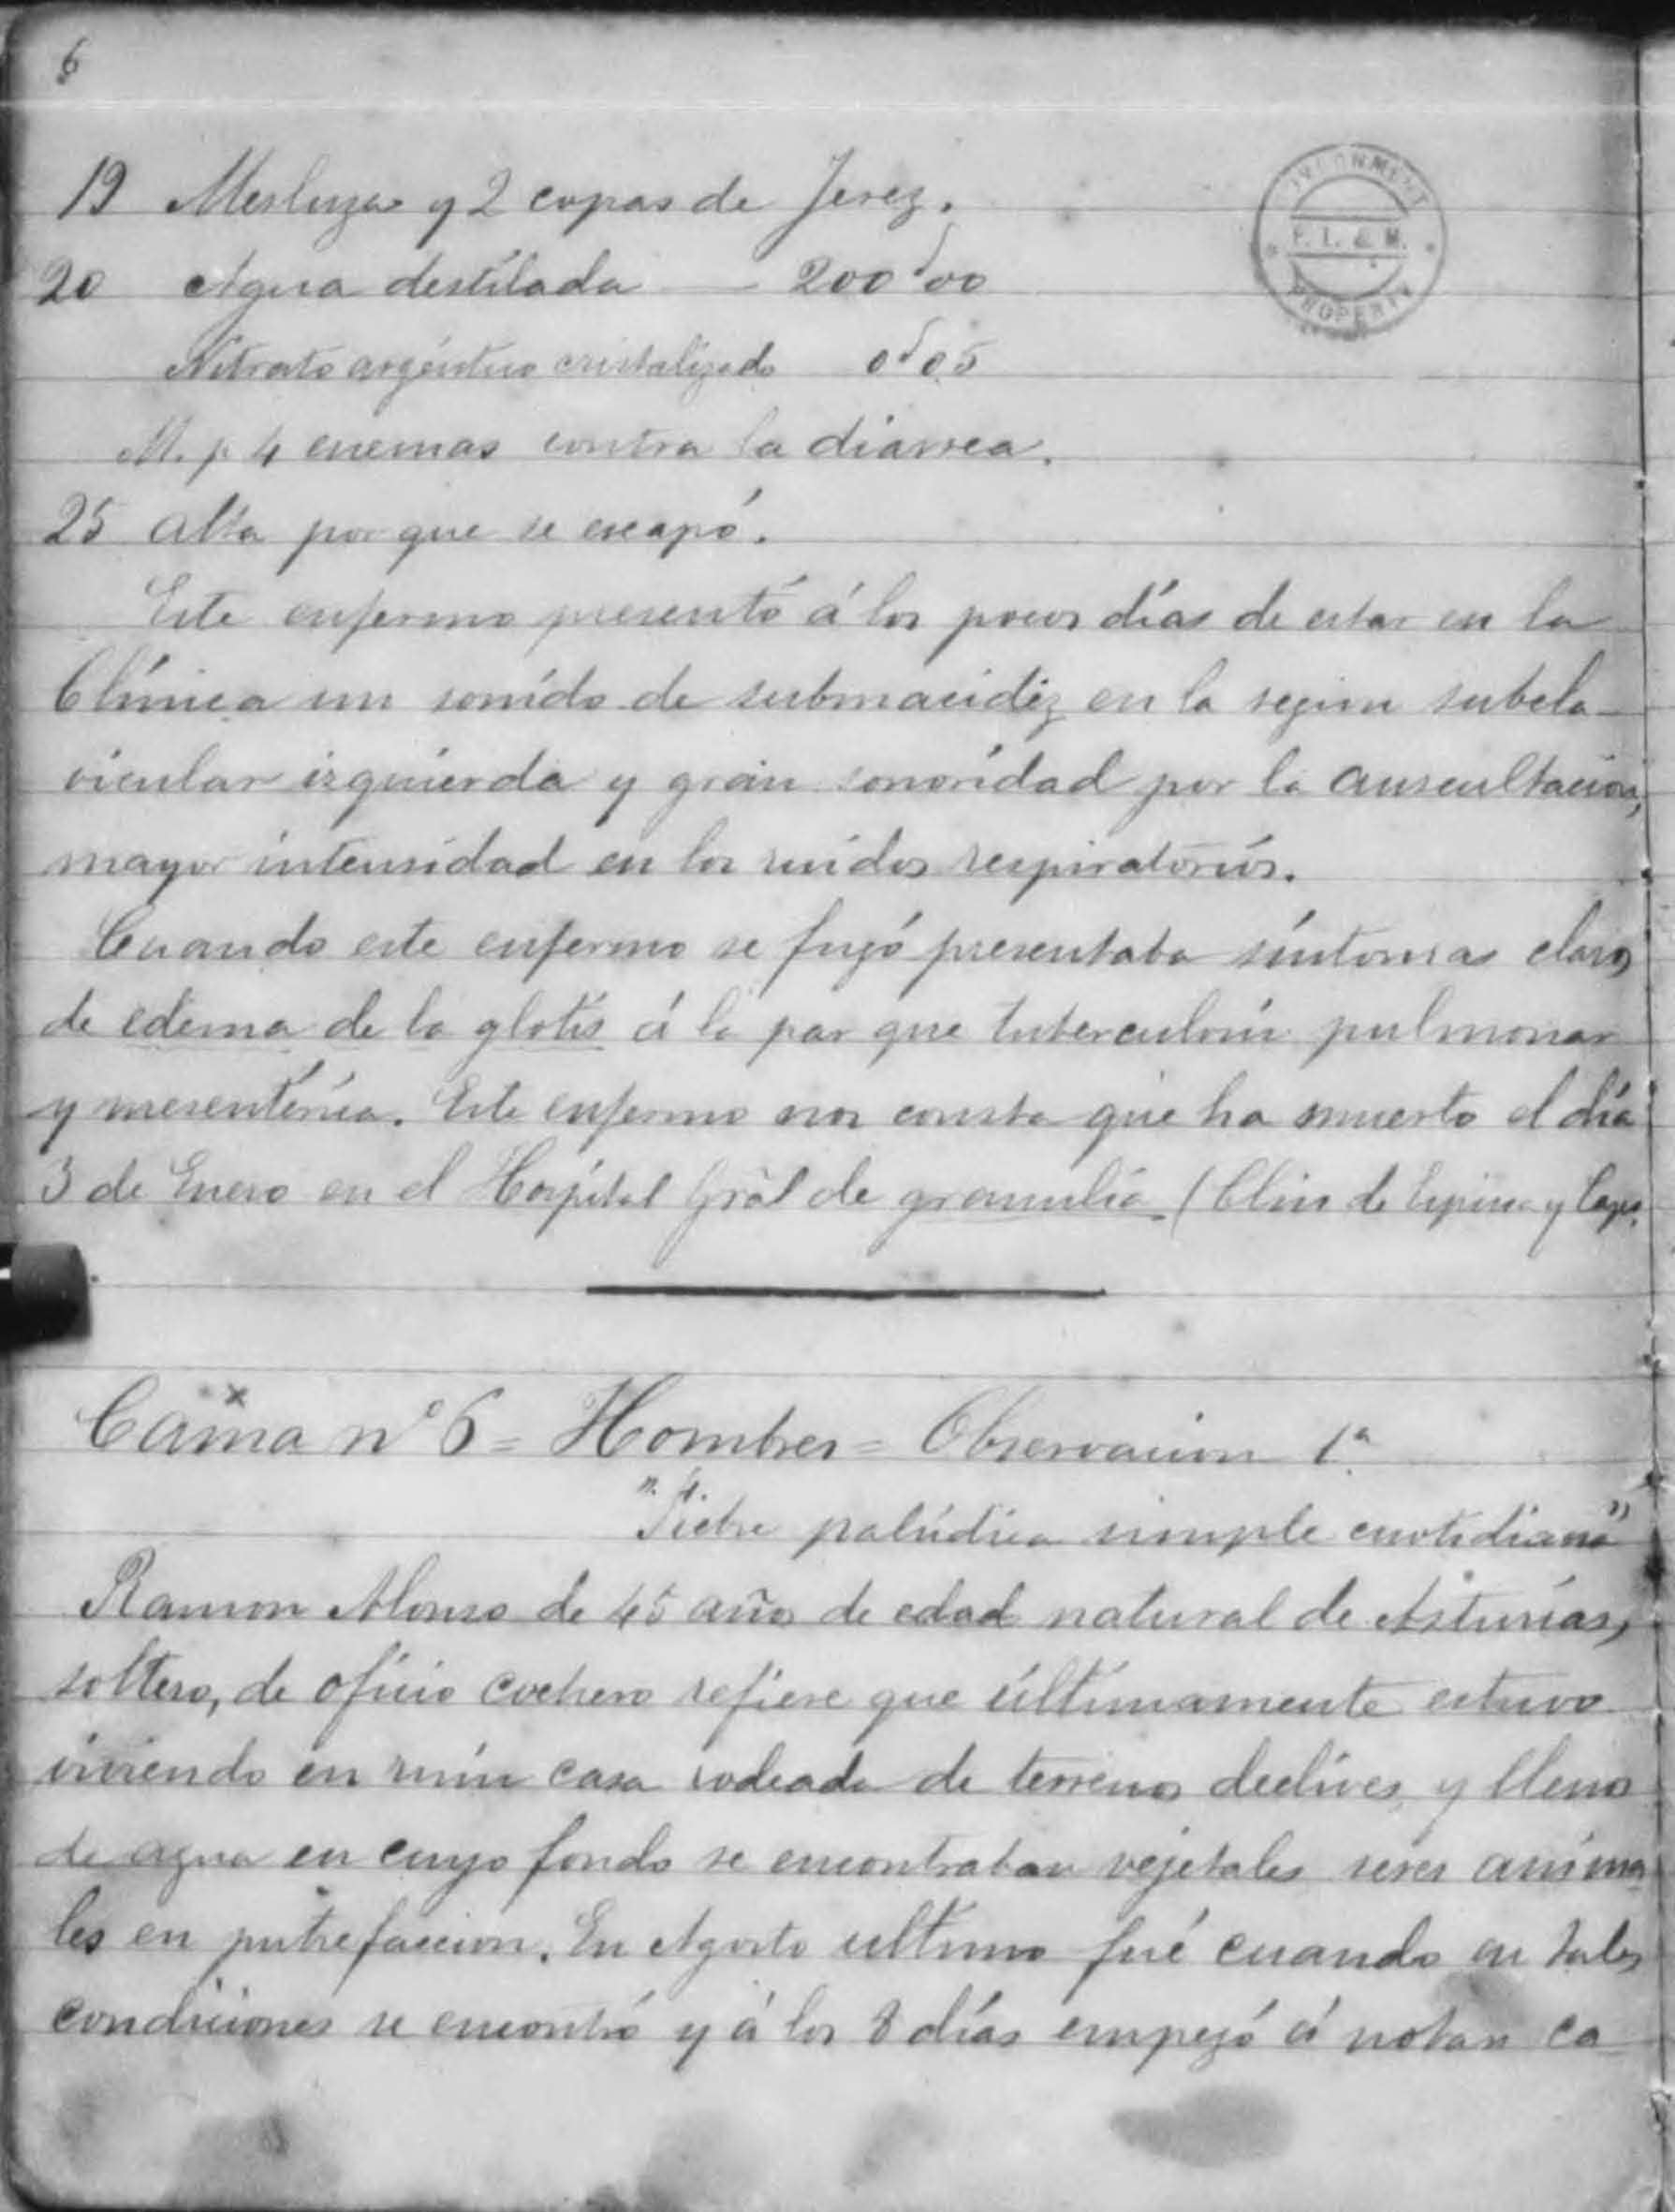 6
19 Merluza y 2 copas de Jerez.
20 Agua destilada — 200'00
Nitrato argéntico cristalizado 0'05
M. p. 4 enemas contra la diarrea.
25 Alta por que se escapó.
Este enfermo presentó á los pocos días de estar en la
Clínica un sonido de submacidez en la region subcla-
vicular izquierda y gran sonoridad por la auscultacion,
mayor intensidad en los ruidos respiratorios.
Cuando este enfermo se fugó presentaba síntomas claros
de edema de la glotis á la par que tuberculosis pulmonar
y mesentérica. Este enfermo nos consta que ha muerto el día
3 de Enero en el Hospital Gral de granulia (Clin de Espina y Capo
Cama nº 6 = Hombres = Observacion 1ª
"Fiebre palúdica simple cuotidiana"
Ramon Alonso de 45 años de edad natural de Asturias,
soltero, de oficio cochero refiere que últimamente estuvo
viviendo en una casa rodeada de terrenos declives y llenos
de agua en cuyo fondo se encontraban vejetales seres anima
les en putrefaccion. En Agosto ultimo fué cuando en tales
condiciones se encontró y á los 8 días empezó á notar ca
P. I. & M.
PROPERTY